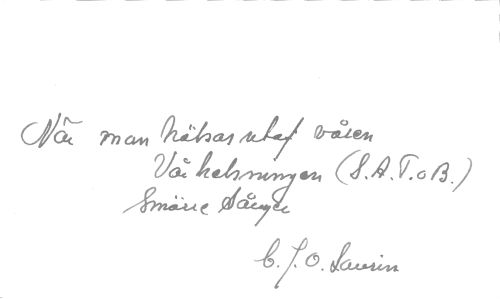 När man hälsas utaf våren
Vårhelsningen (S.A.T.o B.)
Smärre Sånger
C.J.O. Laurin